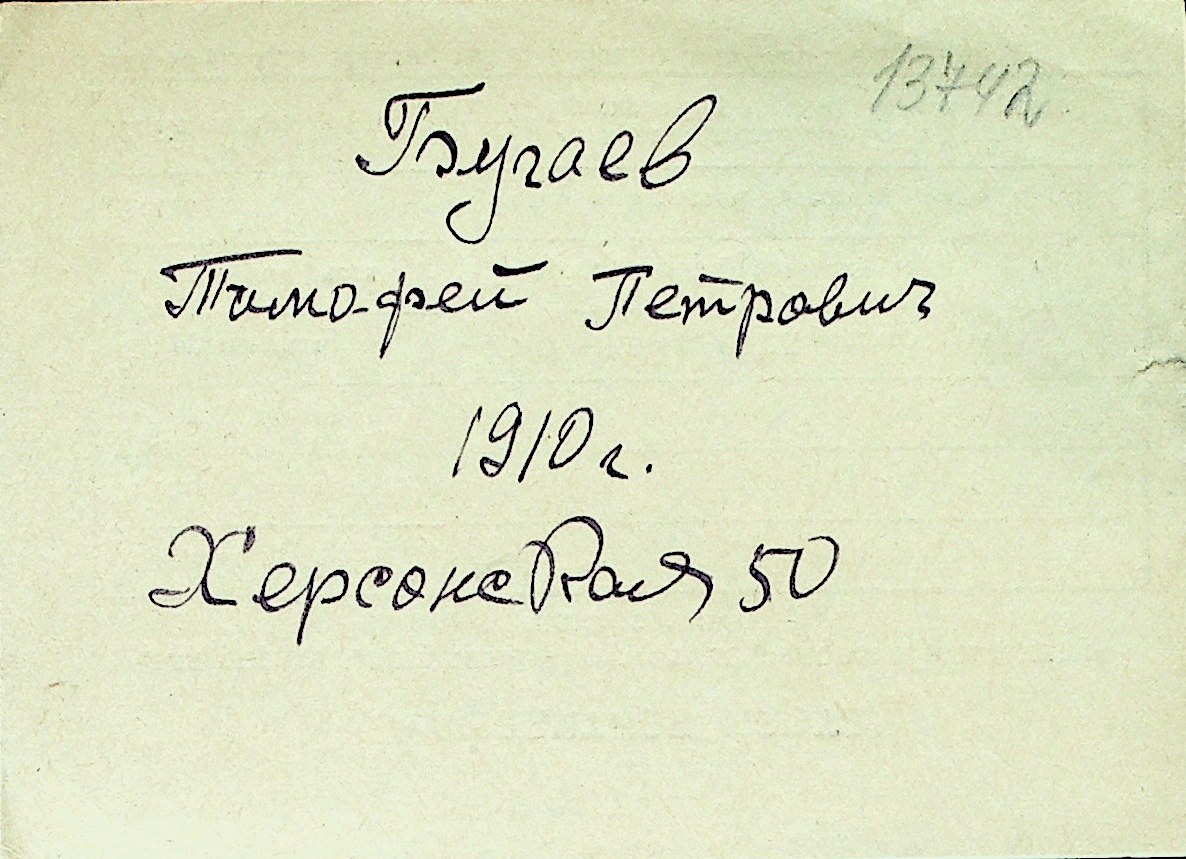 13742
Бугаев
Тимофей Петрович
1910 г.
Херсонская 50